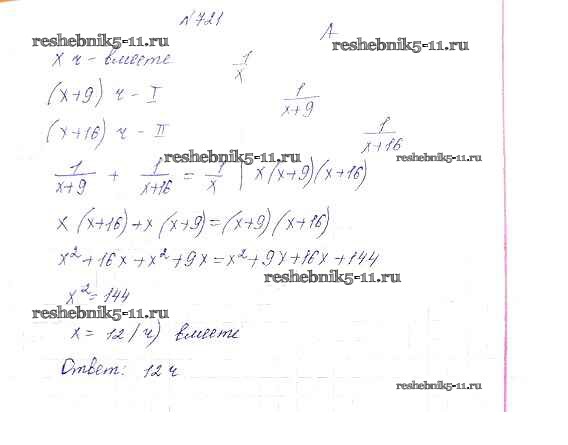 №721
reshebnik5-11.ru
A
reshebnik5-11.ru
x ч - вместе 1/x
(x+9) ч - I 1/(x+9)
(x+16) ч - II 1/(x+16)
reshebnik5-11.ru
reshebnik5-11.ru
1/(x+9) + 1/(x+16) = 1/x | x(x+9)(x+16)
x (x+16)+x (x+9)=(x+9)(x+16)
x²+16x+x²+9x=x²+9x+16x+144
reshebnik5-11.ru
x²=144
reshebnik5-11.ru
x= 12(ч) вместе
Ответ: 12 ч
reshebnik5-11.ru